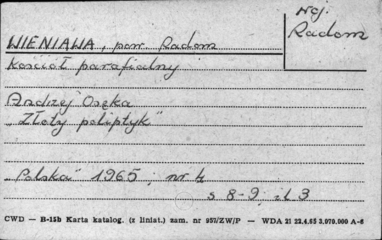 woj.
Radom
WIENIAWA, pow. Radom
Kościół parafialny
Andrzej Osęka
„Złoty poliptyk"
„Polska" 1965, nr 4
s 8-9, il 3
CWD — B-15b Karta katalog. (z liniat.) zam. nr 957/ZW/P — WDA 21 22.4.65 3.070.000 A-6